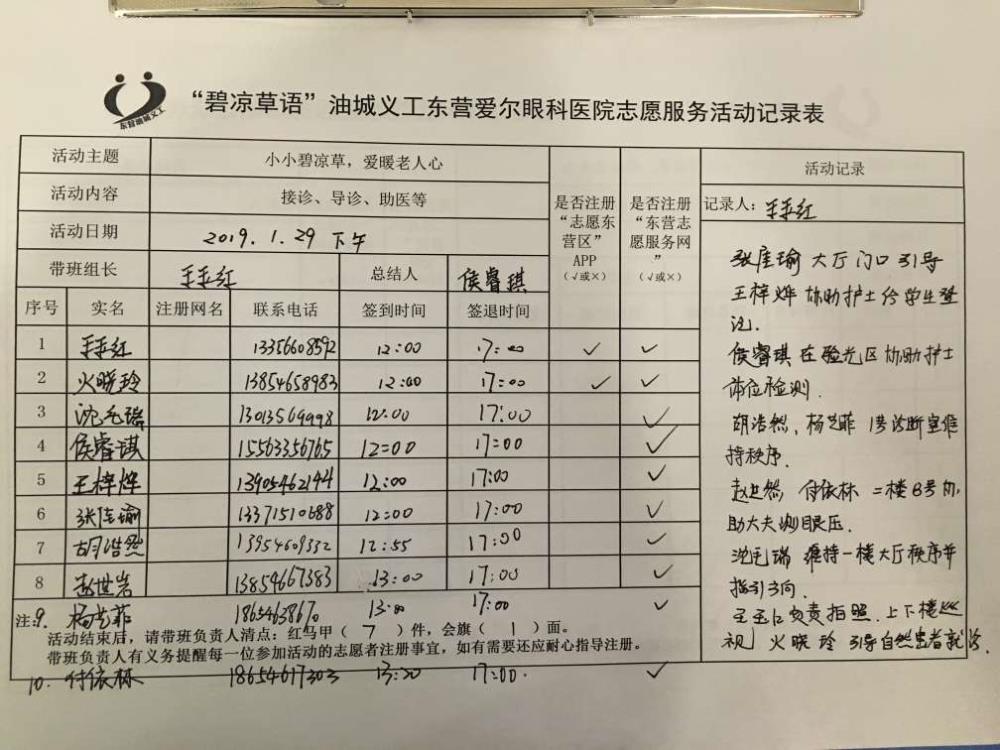 东营油城义工
“碧凉草语”油城义工东营爱尔眼科医院志愿服务活动记录表
活动主题 小小碧凉草，爱暖老人心
活动内容 接诊、导诊、助医等
活动日期 2019.1.29 下午
带班组长 王玉红 总结人 侯睿琪
是否注册“志愿东营区”APP（√或×）
是否注册“东营志愿服务网”（√或×）
序号 实名 注册网名 联系电话 签到时间 签退时间
1 王玉红 13356608592 12:00 17:00 √ √
2 火晓玲 13854658983 12:00 17:00 √ √
3 沈毛瑞 13013569998 12:00 17:00 √
4 侯睿琪 15563356765 12:00 17:00 √
5 王梓烨 13905462144 12:00 17:00 √
6 张佳瑜 13371510688 12:00 17:00 √
7 胡浩然 13954609332 12:55 17:00 √
8 13854667383 13:00 17:00 √
注:9. 杨芝菲 18654638670 13:00 17:00 √
活动结束后，请带班负责人清点：红马甲（ 7 ）件，会旗（ 1 ）面。
带班负责人有义务提醒每一位参加活动的志愿者注册事宜，如有需要还应耐心指导注册。
10. 付依林 18654617303 13:20 17:00. √
活动记录
记录人：王玉红
张佳瑜 大厅门口引导
王梓烨 协助护士给学生登
记.
侯睿琪 在验光区协助护士
体位检测.
胡浩然, 杨芝菲 1号诊断室维
持秩序.
付依林 二楼B号协
助大夫测眼压.
沈毛瑞 维持一楼大厅秩序并
指引方向.
王玉红负责拍照.上下楼巡
视 火晓玲 引导自然患者就诊.